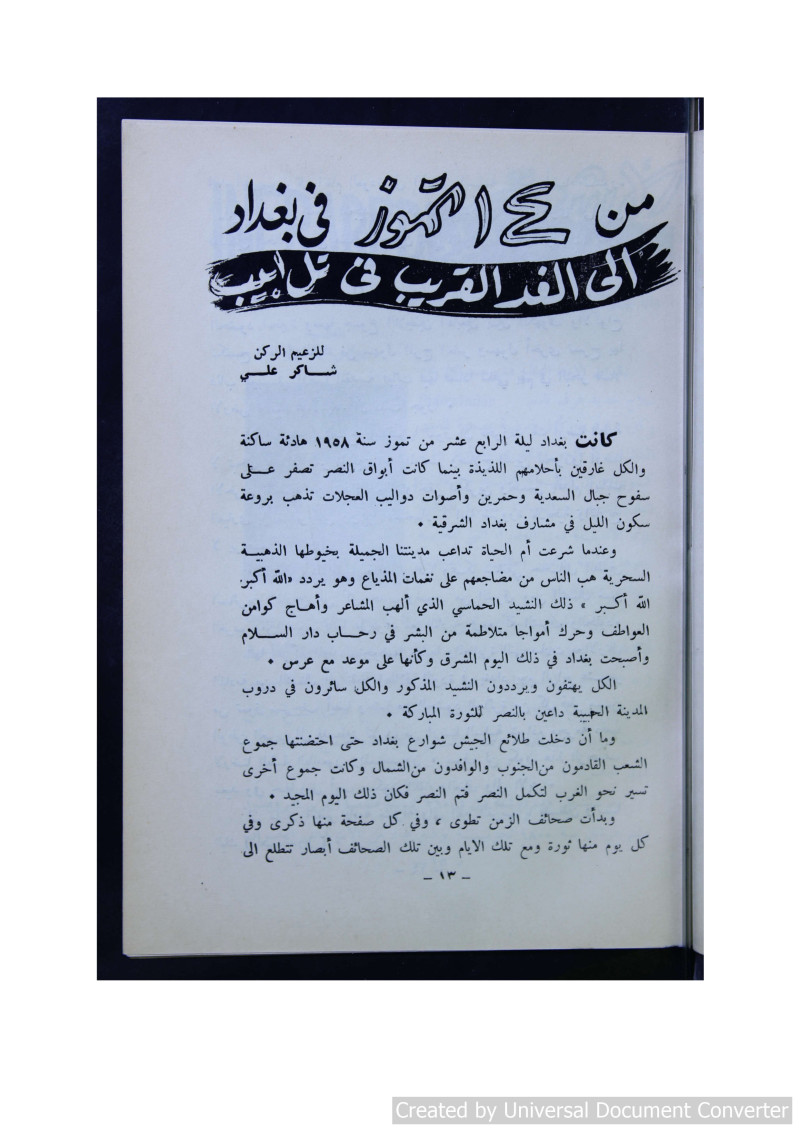 من ١٤ تموز في بغداد
الى الغد القريب في تل ابيب
للزعيم الركن
شاكر علي
كانت بغداد ليلة الرابع عشر من تموز سنة ١٩٥٨ هادئة ساكنة
والكل غارقين بأحلامهم اللذيذة بينما كانت أبواق النصر تصفر على
سفوح جبال السعدية وحمرين وأصوات دواليب العجلات تذهب بروعة
سكون الليل في مشارف بغداد الشرقية ٠
وعندما شرعت أم الحياة تداعب مدينتنا الجميلة بخيوطها الذهبية
السحرية هب الناس من مضاجعهم على نغمات المذياع وهو يردد «الله أكبر.
الله أكبر » ذلك النشيد الحماسي الذي ألهب المشاعر وأهاج كوامن
العواطف وحرك أمواجا متلاطمة من البشر في رحاب دار السلام
وأصبحت بغداد في ذلك اليوم المشرق وكأنها على موعد مع عرس ٠
الكل يهتفون ويرددون النشيد المذكور والكل سائرون في دروب
المدينة الحبيبة داعين بالنصر للثورة المباركة ٠
وما أن دخلت طلائع الجيش شوارع بغداد حتى احتضنتها جموع
الشعب القادمون من الجنوب والوافدون من الشمال وكانت جموع أخرى
تسير نحو الغرب لتكمل النصر فتم النصر فكان ذلك اليوم المجيد ٠
وبدأت صحائف الزمن تطوى ، وفي كل صفحة منها ذكرى وفي
كل يوم منها ثورة ومع تلك الايام وبين تلك الصحائف أبصار تتطلع الى
– ١٣ –
Created by Universal Document Converter